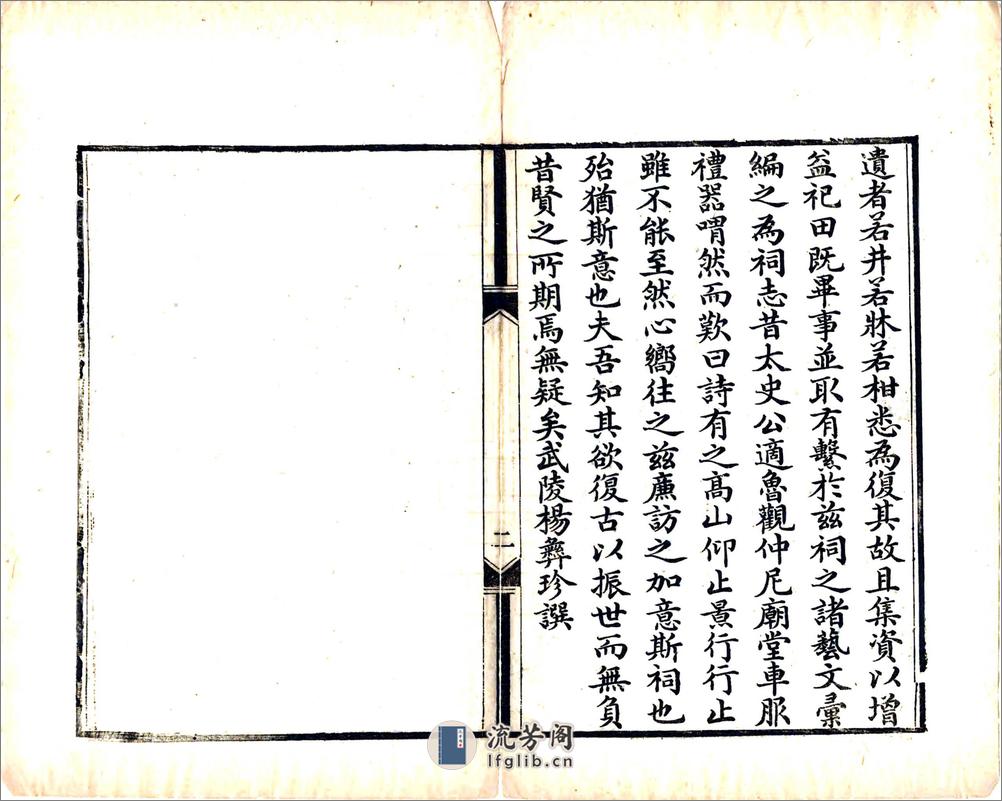 遺者若井若牀若柑悉為復其故且集資以增
益祀田既畢事並取有繫於茲祠之諸藝文彙
編之為祠志昔太史公適魯觀仲尼廟堂車服
禮器喟然而歎曰詩有之高山仰止景行行止
雖不能至然心嚮往之茲廉訪之加意斯祠也
殆猶斯意也夫吾知其欲復古以振世而無負
昔賢之所期焉無疑矣武陵楊彝珍譔
二
流芳阁
lfglib.cn